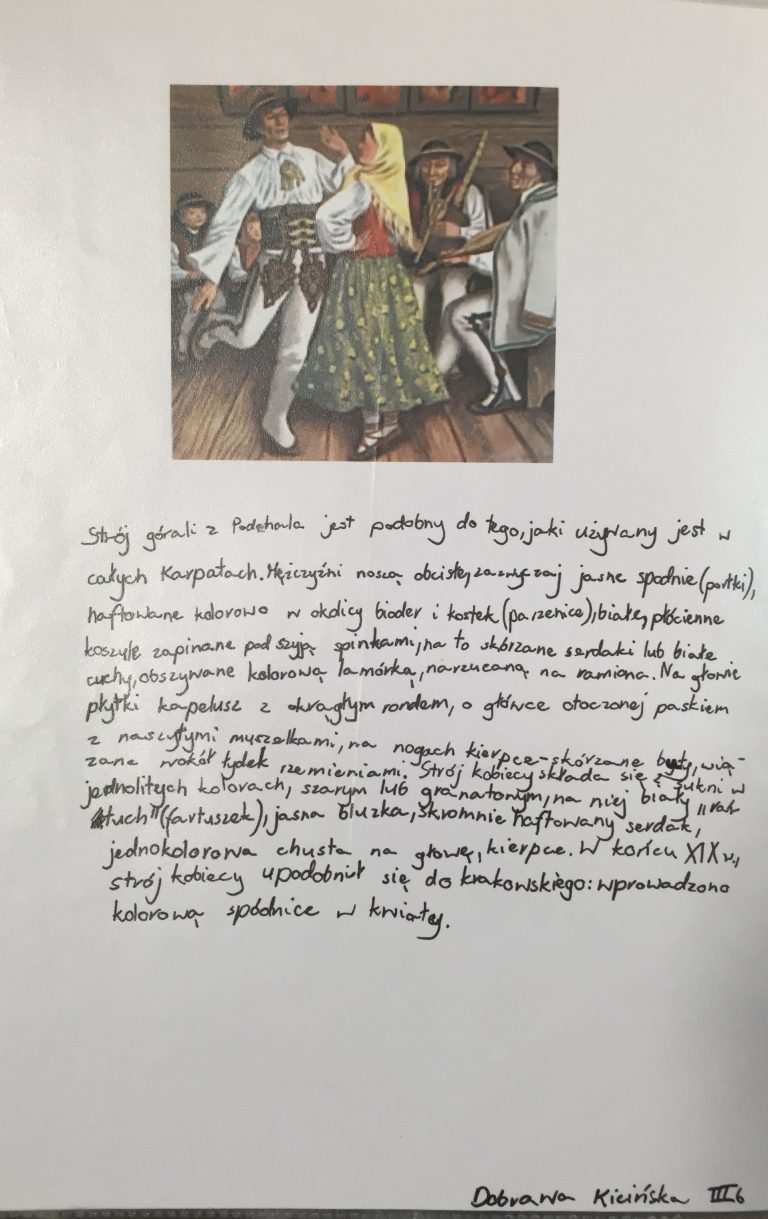 Strój górali z Podchala jest podobny do tego, jaki używany jest w
całych Karpatach. Mężczyźni noszą obcisłe, zazwyczaj jasne spodnie (portki),
haftowane kolorowo w okolicy bioder i kostek (parzenice); białe, płócienne
koszule zapinane pod szyją spinkami, na to skórzane serdaki lub białe
cuchy, obszywane kolorową lamórką, narzucaną na ramiona. Na głowie
płytki kapelusz z okrągłym rondem, o główce otoczonej paskiem
z naszytymi muszelkami, na nogach kierpce - skórzane buty, wią-
zane wokół łydek rzemieniami. Strój kobiecy składa się z sukni w
jednolitych kolorach, szarym lub granatowym, na niej biały „rań
tuch" (fartuszek), jasna bluzka, skromnie haftowany serdak,
jednokolorowa chusta na głowę, kierpce. W końcu XIX w.,
strój kobiecy upodobnił się do krakowskiego: wprowadzono
kolorową spódnice w kwiaty.
Dobrawa Kicińska III b